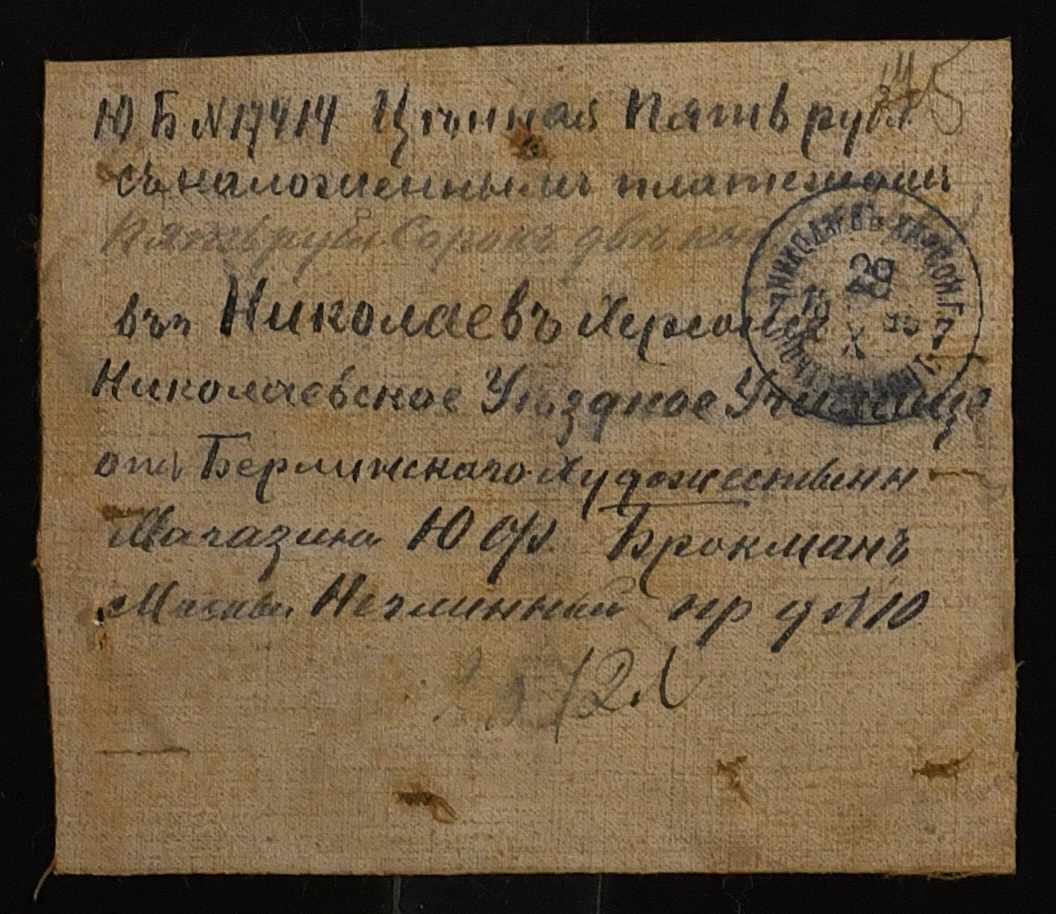 Ю Б №17414 Цѣнная Пять рубл.
съ наложеннымъ платежомъ
Пять рубл. Сорокъ двѣ коп
въ Николаевъ Херсон
Николаевское Уѣздное Училище
отъ Берлинскаго Художественн
Магазина Ю Ф. Брокманъ
Москва Неглинный пр д №10
НИКОЛАЕВЪ ХЕРСОН. Г.
29
X